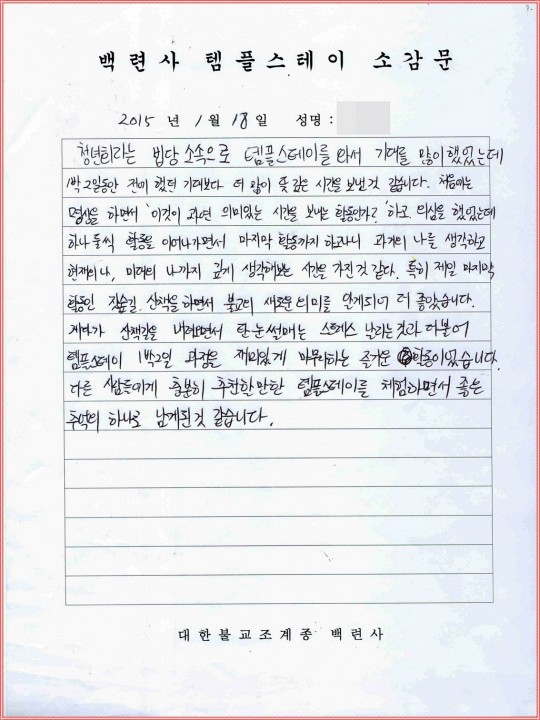 백련사 템플스테이 소감문
2015 년 1 월 18 일 성명 :
청년회라는 법당 소속으로 템플스테이를 와서 기대를 많이 했었는데
1박 2일동안 전에 했던 기대보다 더 많이 뜻 깊은 시간을 보낸것 같습니다. 처음에는
명상을 하면서 '이것이 과연 의미있는 시간을 보내는 활동인가?' 하고 의심을 했었는데
하나 둘씩 활동을 이어나가면서 마지막 활동까지 하고나니 과거의 나를 생각하고
현재의 나, 미래의 나까지 깊게 생각해보는 시간을 가진것 같다. 특히 제일 마지막
활동인 깃숲길 산책을 하면서 불교의 새로운 의미를 알게되어 더 좋았습니다.
게다가 산책길을 내려오면서 탄 눈썰매는 스트레스 날리는것과 더불어
템플스테이 1박2일 과정을 재미있게 마무리하는 즐거운 활동이었습니다.
다른 사람들에게 충분히 추천할만한 템플스테이를 체험하면서 좋은
추억의 하나로 남게된것 같습니다.
대한불교조계종 백련사